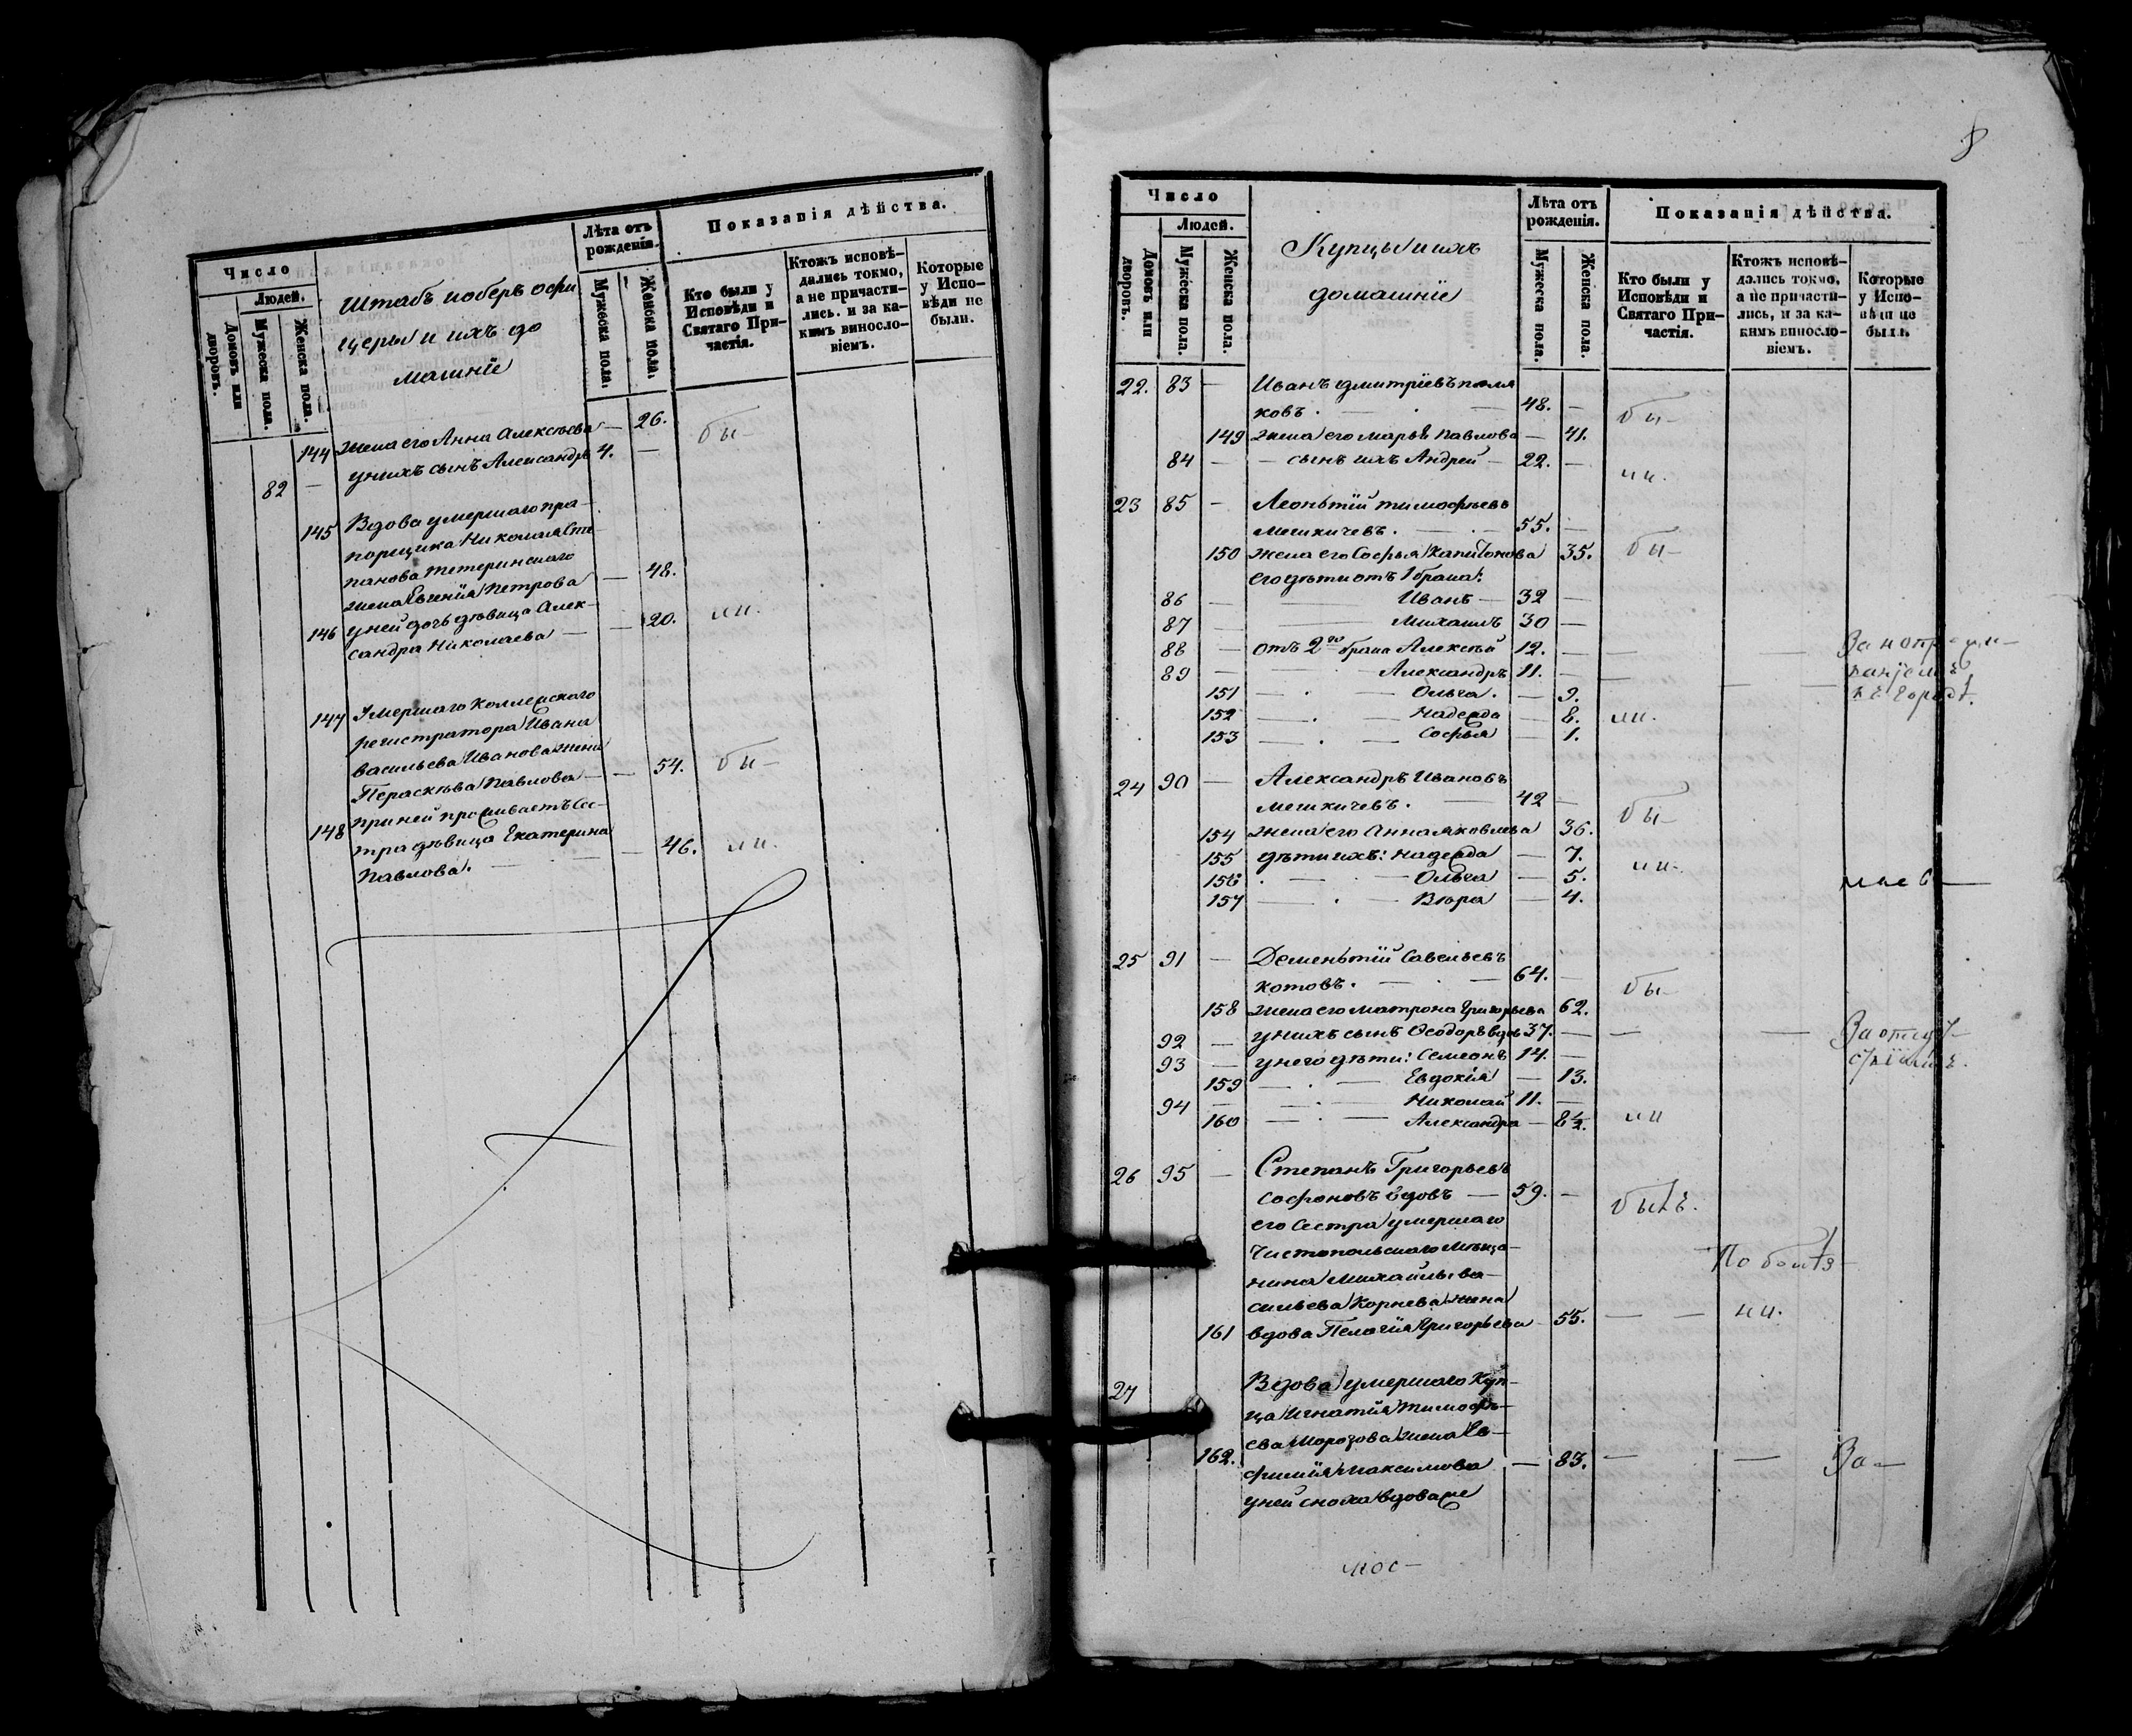 Число
Людей.
Домовъ или дворовъ.
Мужеска пола.
Женска пола.
Штабъ иоберъ офи
церы и ихъ до
машніе
Лѣта отъ рожденія.
Мужеска пола.
Женска пола.
Показанія дѣйства.
Кто были у Исповѣди и Святаго Причастія.
Ктожъ исповѣдались токмо, а не причастились. и за какимъ винословіемъ.
Которые у Исповѣди не были.
144 жена его Анна Алексѣева — 26. бы—
82 — унихъ сынъ Александръ 4. —
145 Вдова умершаго пра-
порщика Николая Сте
панова Тетеринскаго
жена Евгенія Петрова — 48.
146 уней дочь дѣвица Алек-
сандра Николаева — — 20. ли.
147 Умершаго Коллежскаго
регистратора Ивана
васильева Иванова жена
Пераскѣва Павлова — — 54. бы—
148 при ней проживаетъ Сес-
тра дѣвица Екатерина
Павлова. — 46. ли.
8
Число
Людей.
Домовъ или дворовъ.
Мужеска пола.
Женска пола.
Купцы и ихъ
домашніе
Лѣта отъ рожденія.
Мужеска пола.
Женска пола.
Показанія дѣйства.
Кто были у Исповѣди и Святаго Причастія.
Ктожъ исповѣдались токмо, а не причастились, и за какимъ винословіемъ.
Которые у Исповѣди не были.
22. 83 — Иванъ дмитріевъ поля
ковъ. — 48. — бы—
149 жена его марья павлова — 41.
84 — — сынъ ихъ Андрей — 22. — ли.
23 85 — Леоньтій тимофѣевъ
мешкичевъ. — 55. —
150 жена его Софья Капитонова 35. бы—
его дѣти отъ 1 брака:
86 — — Иванъ — 32 —
87 — — Михаилъ 30 —
88 — отъ 2го брака Алексѣй 12. — — —
89 — Александръ 11. — — —
въ городѣ.
151 — . — Ольга. — 9.
152 — . — Надежда — 8. ли.
153 — . — Софья — 1.
24 90 — Александръ Ивановъ
мешкичевъ. — 42 — бы—
154 жена его Анна яковлева 36.
155 дѣти ихъ: Надежда — 7. ли.
156 . — . — Ольга — 5.
157 — . — Вѣра — 4.
25 91 — Дементій Савельевъ
котовъ. — 64. — бы—
158 жена его матрона Григорьева 62.
92 — унихъ сынъ Ѳеодоръ вдовъ 37. — — — За отсут-
ствіемъ.
93 — унего дѣти: Семеонъ 14. —
159 — . — Евдокія — 13.
94 — — . — Николай 11. —
160 — . — Александра — 8½. ли
26 95 — Степанъ Григорьевъ
Софоновъ вдовъ — 59. — былъ.
его Сестра умершаго
Чистопольскаго мѣща-
нина Михаила ва-
сильева Корнева жена
161 вдова Пелагія Григорьева 55. — —
27 Вдова умершаго Куп-
ца Игнатія Тимофѣ-
ева Морозова жена Ев-
162. фимія Максимова — 83. — — За—
уней сноха вдова же